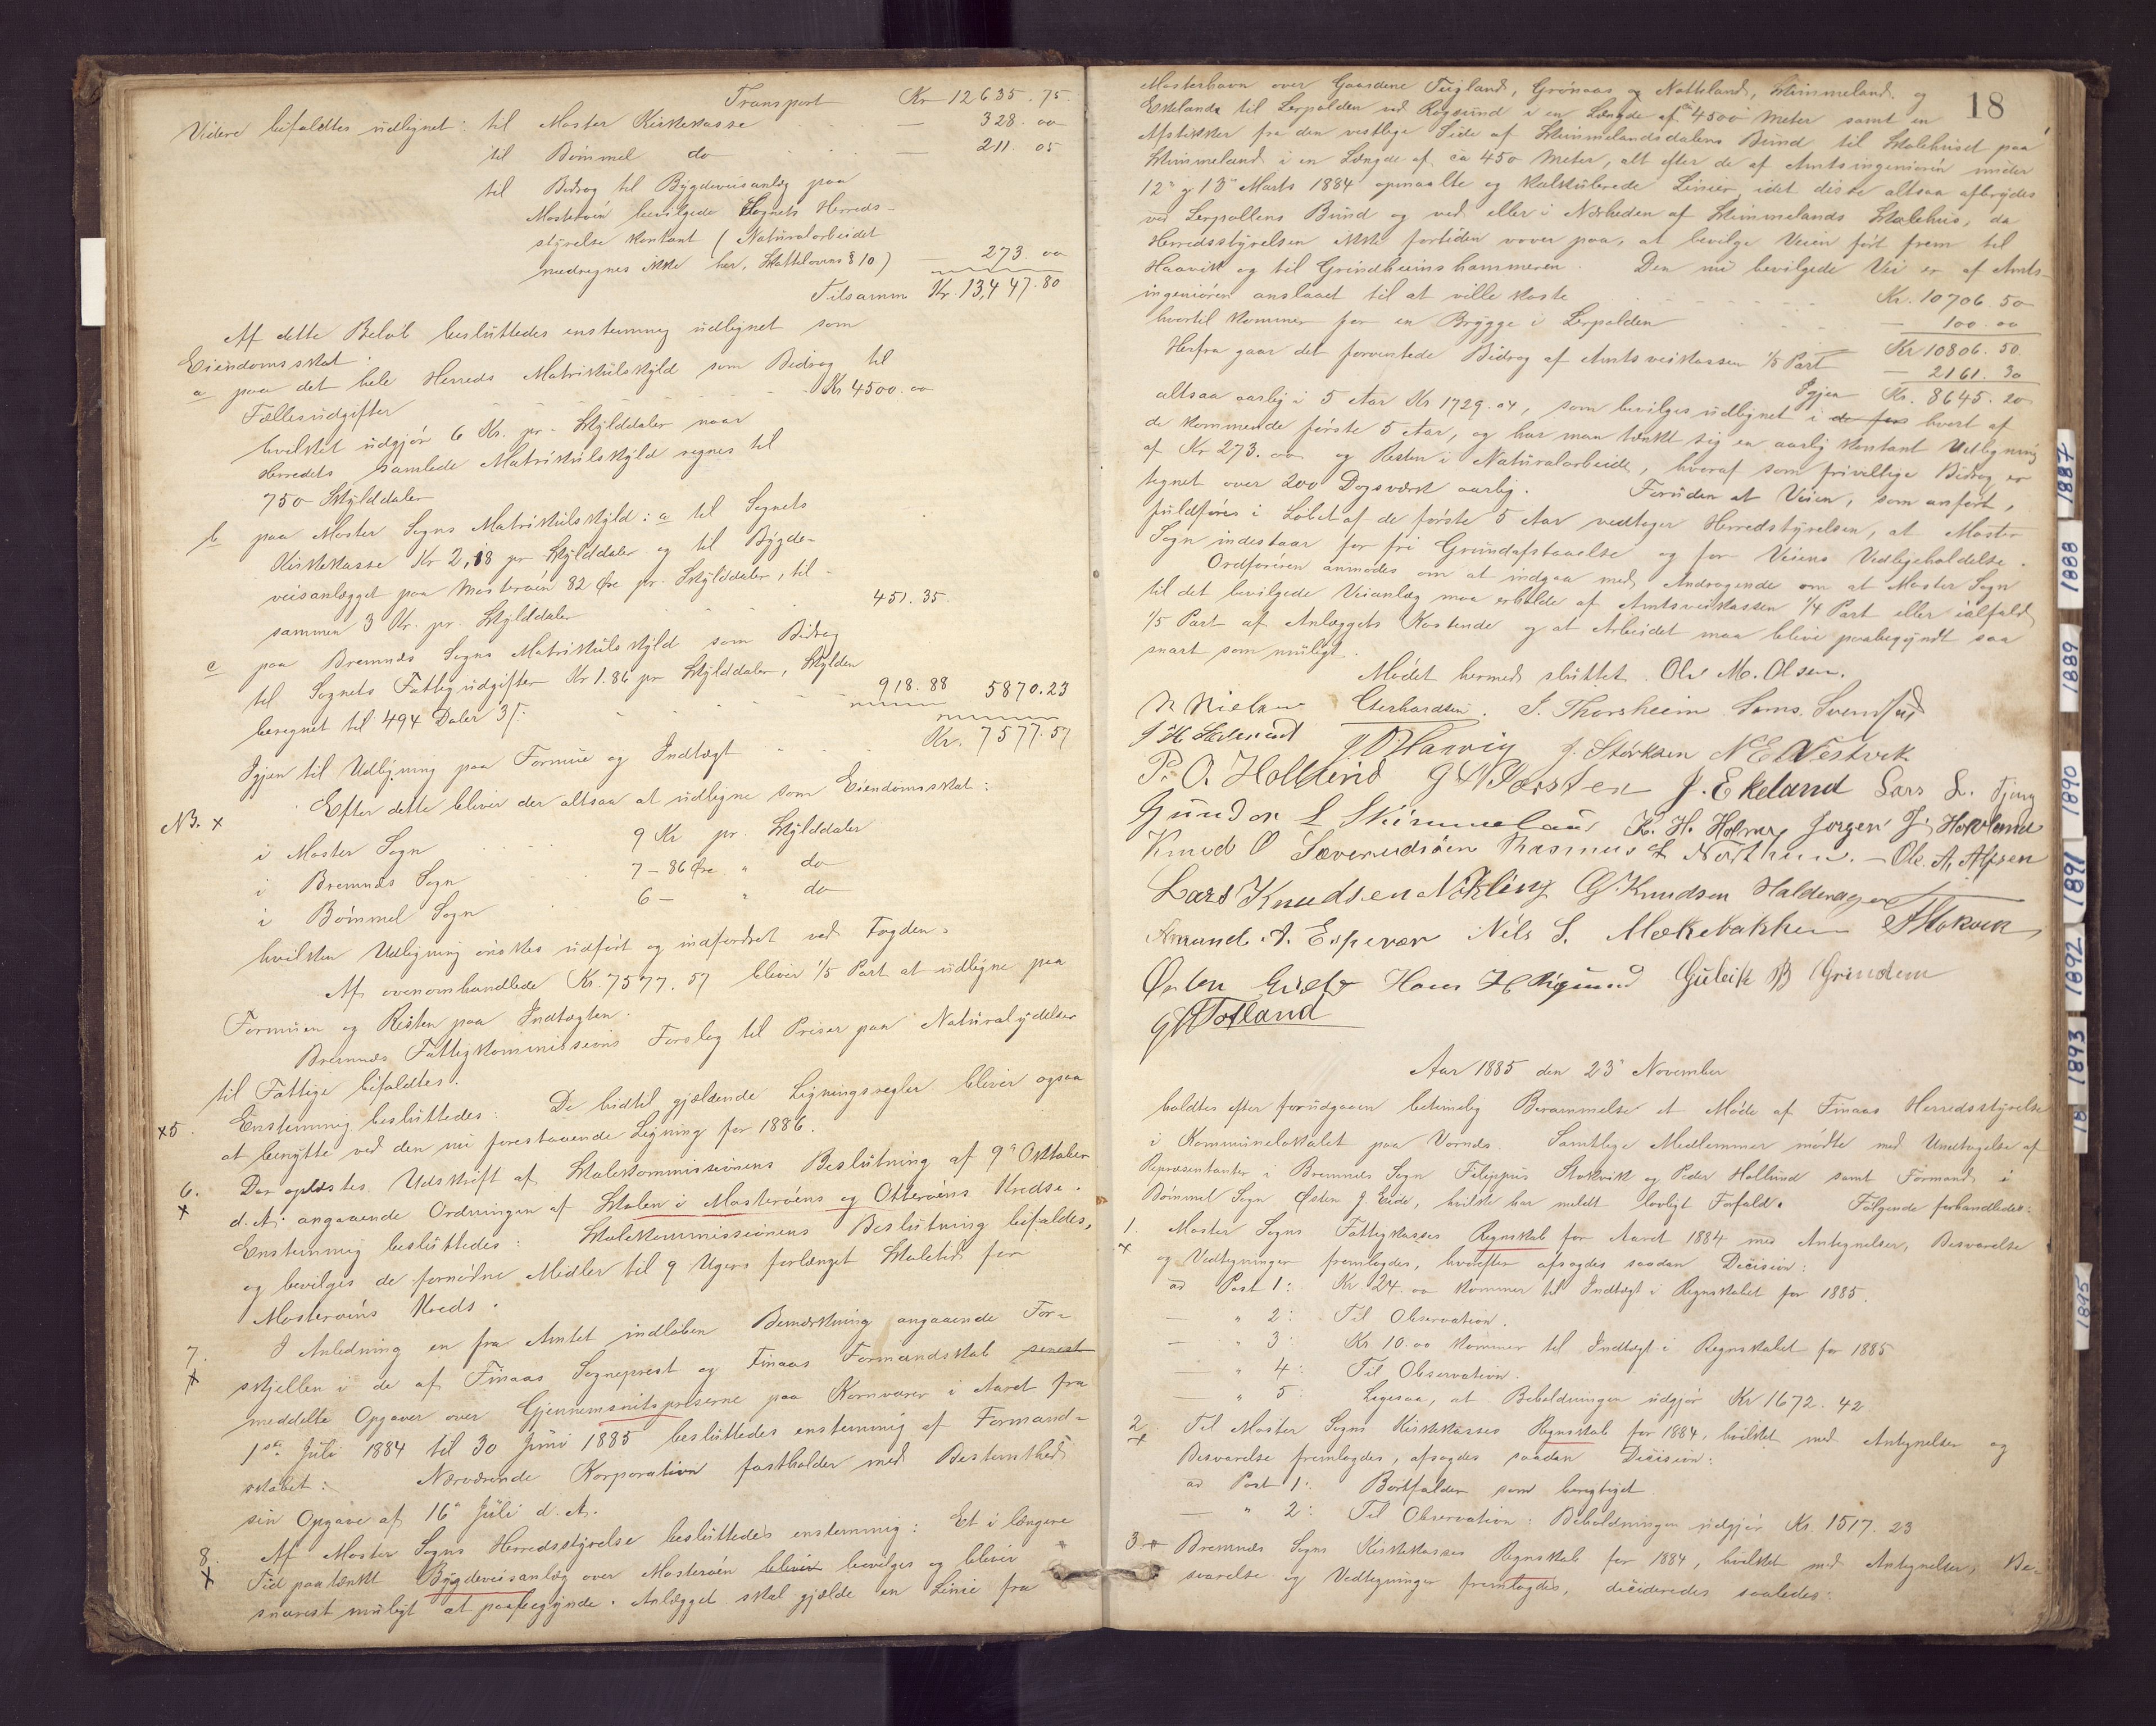 Transport Kr 12635.75
Videre bifaldtes udlignet: til Moster Kirkekasse — 328.00
til Bømmel do — 211.05
til Bidrag til Bygdeveisanlæg paa
Mosterøen bevilgede Sognets Herreds-
styrelse kontant (Naturalarbeidet
medregnes ikke her, Skattelovens § 10) — 273.00
Tilsamm Kr. 13,447.80
Af dette Beløb besluttedes enstemmig udlignet som
Eiendomsskat
a paa det hele Herreds Matrikulskyld som Bidrag til
Fællesudgifter Kr 4500.00
hvilket udgjør 6 Kr. pr. Skylddaler naar
Herredets samlede Matrikulskyld regnes til
750 Skylddaler
b paa Moster Sogns Matrikulskyld: a til Sognets
Kirkekasse Kr 2,18 pr Skylddaler og til Bygde-
veisanlægget paa Mosterøen 82 Øre pr. Skylddaler, til-
sammen 3 Kr. pr. Skylddaler 451.35.
c paa Bremnæs Sogns Matrikulskyld som Bidrag
til Sognets Fattigudgifter Kr 1.86 pr Skylddaler, Skylden
beregnet til 494 Daler 3 918.88 5870.23
Igjen til Udligning paa Formue og Indtægt Kr. 7577.57
NB. x Efter dette bliver der altsaa at udligne som Eiendomsskat:
i Moster Sogn 9 Kr pr. Skylddaler
i Bremnæs Sogn 7 – 86 Øre " do
i Bømmel Sogn 6 – " do
hvilken Udligning ønskes udført og indfordret ved Fogden.
Af ovenomhandlede Kr. 7577.57 bliver 1/5 Part at udligne paa
Formuen og Resten paa Indtægten.
Bremnæs Fattigkommissions Forslag til Priser paa Naturalydelser
til Fattige bifaldtes.
x5. Enstemmig besluttedes: De hidtil gjældende Ligningsregler bliver ogsaa
at benytte ved den nu forestaaende Ligning for 1886.
6. Der oplæstes Udskrift af Skolekommissionens Beslutning af 9de Oktober
x d.A. angaaende Ordningen af Skolen i Mosterøens og Otterøens Kredse.
Enstemmig besluttedes: Skolekommissionens Beslutning bifaldes,
og bevilges de fornødne Midler til 9 Ugers forlænget Skoletid for
Mosterøens Kreds.
7. I Anledning en fra Amtet indløben Bemærkning angaaende For-
x skjellen i de af Finaas Sogneprest og Finaas Formandskab senest
meddelte Opgaver over Gjennemsnitspriserne paa Kornvarer i Aaret fra
1ste Juli 1884 til 30 Juni 1885 besluttedes enstemmig af Formand-
skabet: Nærværende Korporation fastholder med Bestemthed
sin Opgave af 16de Juli d.A.
8. Af Moster Sogns Herredsstyrelse besluttedes enstemmig: Et i længere
x Tid paatænkt Bygdeveisanlæg over Mosterøen bliver bevilges og bliver
snarest muligt at paabegynde. Anlægget skal gjælde en Linie fra
18
Mosterhavn over Gaardene Tugland, Grønaas og Notteland, Skimmeland og
Eskelands til Lerpolden ved Røgsund i en Længde af ca 4500 Meter samt en
Afstikker fra den vestlige Side af Skimmelandsdalens Bund til Skolehuset paa
Skimmeland i en Længde af ca 450 Meter, alt efter de af Amtsingeniøren under
12te og 13de Marts 1884 opmaalte og kalkulerede Linier, idet disse altsaa afbrydes
ved Lerpollens Bund og ved eller i Nærheden af Skimmelands Skolehus, da
Herredsstyrelsen ikke fortiden vover paa, at bevilge Veien ført frem til
Haavik og til Grindheimshammeren. Den nu bevilgede Vei er af Amts-
ingeniøren anslaaet til at ville koste Kr. 10706.50
hvortil kommer for en Brygge i Lerpolden — 100.00
Kr 10806.50.
Herfra gaar det forventede Bidrag af Amtsveikassen 1/5 Part — 2161.30
Igjen Kr. 8645.20
altsaa aarlig i 5 Aar Kr 1729.04, som bevilges udlignet i de før hvert af
de kommende første 5 Aar, og har man tænkt sig en aarlig kontant Udligning
af Kr 273.00 og Resten i Naturalarbeide, hvoraf som frivillige Bidrag er
tegnet over 200 Dagsværk aarlig. Foruden at Veien, som anført,
fuldføres i Løbet af de første 5 Aar vedtager Herredstyrelsen, at Moster
Sogn indestaar for fri Grundafstaaelse og for Veiens Vedligeholdelse.
Ordføreren anmodes om at indgaa med Andragende om at Moster Sogn
til det bevilgede Veianlæg maa erholde af Amtsveikassen 1/4 Part eller ialfald
1/5 Part af Anlæggets Kostende og at Arbeidet maa blive paabegyndt saa
snart som muligt.
Mødet hermed sluttet. Ole M. Olsen.
N Nielsen Gerhardsen. S. Thorsheim Sams. Svendsen
J. Størksen N E Vestvik
P. O. Hollund J. Ekeland Lars L.
Gunder L Skimmeland K. H. Holme Jørgen J. Hovland
Knud O Sæverudsøen Rasmus Ole A. Alfsen
Lars Knudsen Økling G. Knudsen Haldorvagen
Amund A. Espevær Nils S. Mækebakken F Stokvik
Østen Eide Hans H Vigsund Guleik B Grindem
Totland
Aar 1885 den 23de November
holdtes efter forudgaaen betimelig Berammelse et Møde af Finaas Herredsstyrelse
i Kommunelokalet paa Vornæs. Samtlige Medlemmer mødte med Undtagelse af
Repræsentanter i Bremnæs Sogn Filippus Stokvik og Peder Hollund samt Formand i
Bømmel Sogn Østen J. Eide, hvilke har meldt lovligt Forfald. Følgende forhandledes:
1. Moster Sogns Fattigkasses Regnskab for Aaret 1884 med Antegnelser, Besvarelse
x og Vedtegninger fremlagdes, hvorefter afsagdes saadan Decision:
ad Post 1: Kr 24.00 kommer til Indtægt i Regnskabet for 1885.
— " 2: Til Observation.
— " 3: Kr 10.00 kommer til Indtægt i Regnskabet for 1885
— " 4: Til Observation.
— " 5: Ligesaa, at Beholdningen udgjør Kr 1672.42
2. Til Moster Sogns Kirkekasses Regnskab for 1884, hvilket med Antegnelser og
x Besvarelse fremlagdes, afsagdes saadan Decision:
ad Post 1: Bortfalder som berigtiget
— " 2: Til Observation: Beholdningen udgjør Kr. 1517.23
3. x Bremnæs Sogns Kirkekasses Regnskab for 1884, hvilket med Antegnelser, Be-
svarelse og Vedtegninger fremlagdes, decideredes saaledes:
1887
1888
1889
1890
1891
1892
1893
18
1895